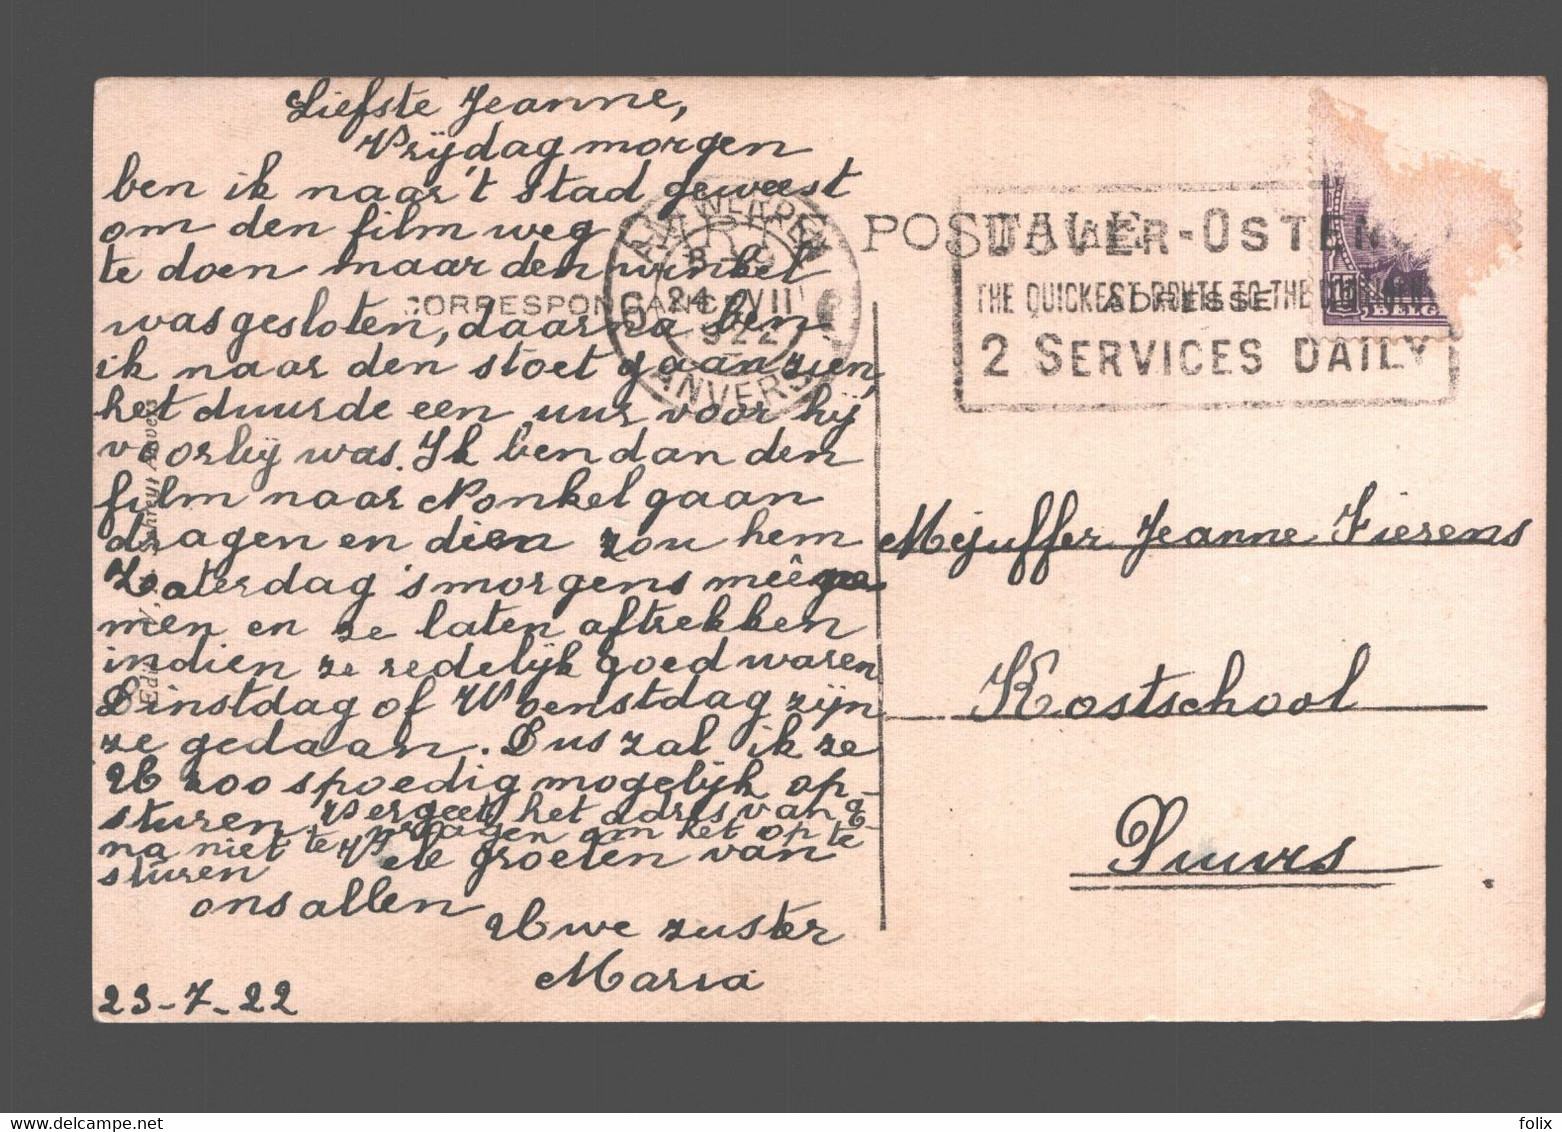 Liefste Jeanne,
Vrijdagmorgen
ben ik naar 't stad geweest
om den film weg
te doen maar den winkel
was gesloten, daarna ben
ik naar den stoet gaan zien,
het duurde een uur voor hij
voorbij was. Ik ben dan den
film naar Nonkel gaan
dragen en dien zou hem
Zaterdag 's morgens meêne
men en ze laten aftrekken
indien ze redelijk goed waren
Dinstdag of Woenstdag zijn
ze gedaan. Dus zal ik ze
U zoo spoedig mogelijk op-
sturen. Vergeet het adres van
na niet te vragen om het op te
sturen Vele groeten van
ons allen
Uwe zuster
Maria
23-7-22
CARTE POSTALE
CORRESPONDANCE
ADRESSE
ANTWERPEN
8-9
24 VII
1922
ANVERS
DOVER-OSTEN
THE QUICKEST ROUTE TO THE
2 SERVICES DAILY
BELG
Mejuffer Jeanne Fierens
Kostschool
Puurs
Anvers
folix